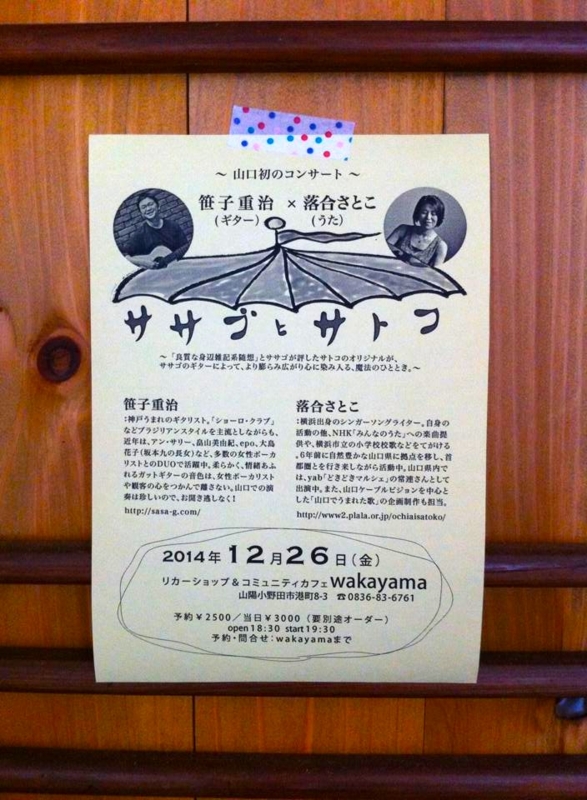 ～ 山口初のコンサート ～
笹子重治 × 落合さとこ
(ギター) (うた)
ササゴとサトコ
～「良質な身辺雑記系随想」とササゴが評したサトコのオリジナルが、
ササゴのギターによって、より膨らみ広がり心に染み入る、魔法のひととき。～
笹子重治
：神戸うまれのギタリスト。「ショーロ・クラブ」
などブラジリアンスタイルを主流としながらも、
近年は、アン・サリー、畠山美由紀、epo、大島
花子(坂本九の長女)など、多数の女性ボーカ
リストとのDUOで活躍中。柔らかく、情緒あふ
れるガットギターの音色は、女性ボーカリスト
や観客の心をつかんで離さない。山口での演
奏は珍しいので、お聞き逃しなく！
http://sasa-g.com/
落合さとこ
：横浜出身のシンガーソングライター。自身の
活動の他、NHK「みんなのうた」への楽曲提
供や、横浜市立の小学校校歌などをてがける
。6年前に自然豊かな山口県に拠点を移し、首
都圏とを行き来しながら活動中。山口県内で
は、yab「どきどきマルシェ」の常連さんとして
出演中。また、山口ケーブルビジョンを中心と
した「山口でうまれた歌」の企画制作も担当。
http://www2.plala.or.jp/ochiaisatoko/
2014年 12月26日(金)
リカーショップ＆コミュニティカフェ wakayama
山陽小野田市港町8-3 ☎0836-83-6761
予約￥2500／当日￥3000（要別途オーダー）
open18:30 start19:30
予約・問合せ：wakayamaまで